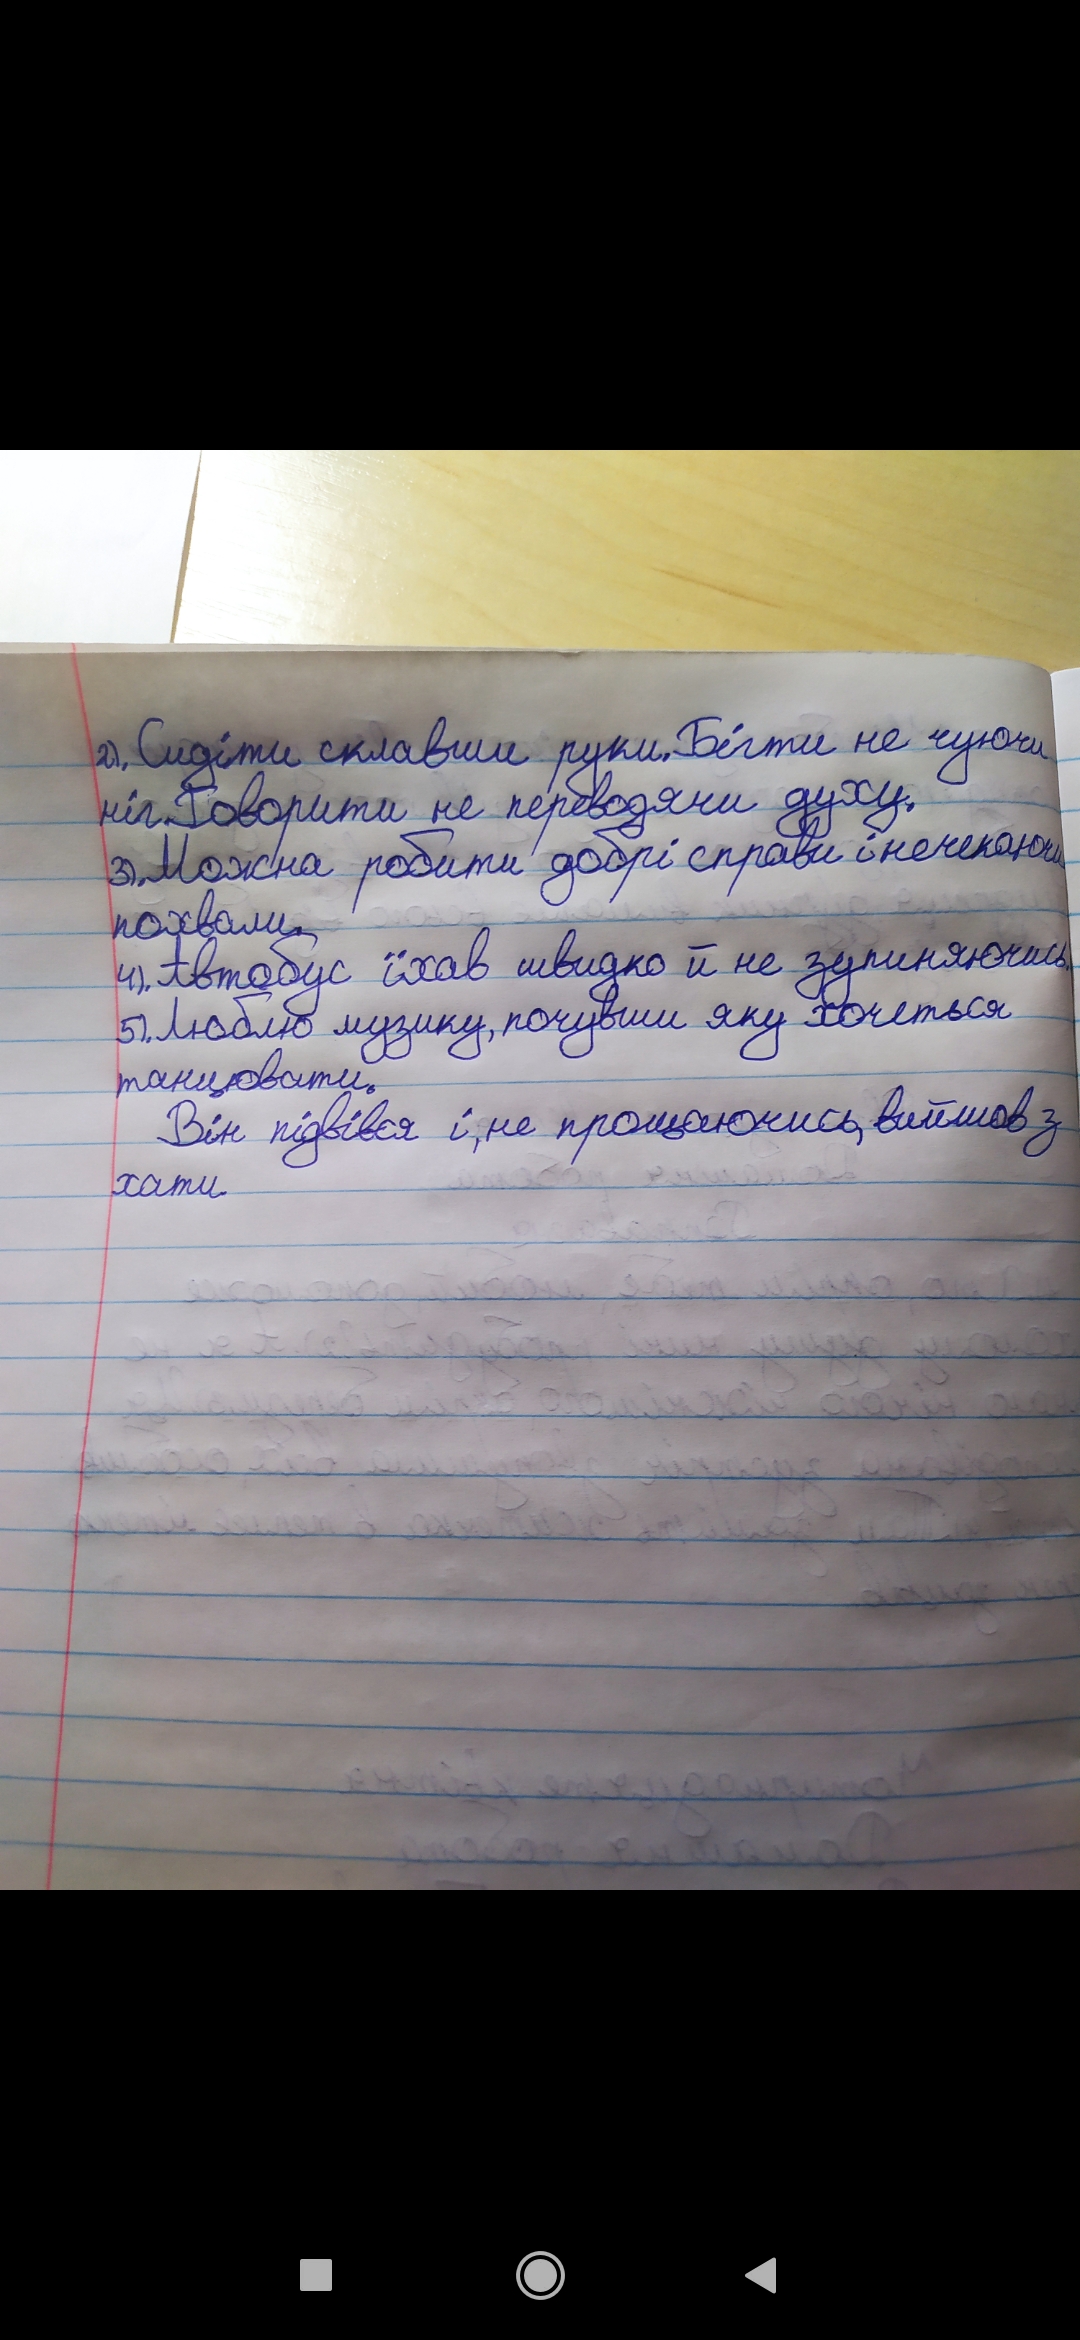 2). Сидіти склавши руки. Бігти не чуючи
ніг. Говорити не переводячи духу.
3). Можна робити добрі справи і не чекаючи
похвали.
4). Автобус їхав швидко й не зупиняючись.
5). Люблю музику, почувши яку хочеться
танцювати.
Він підвівся і, не прощаючись, вийшов з
хати.